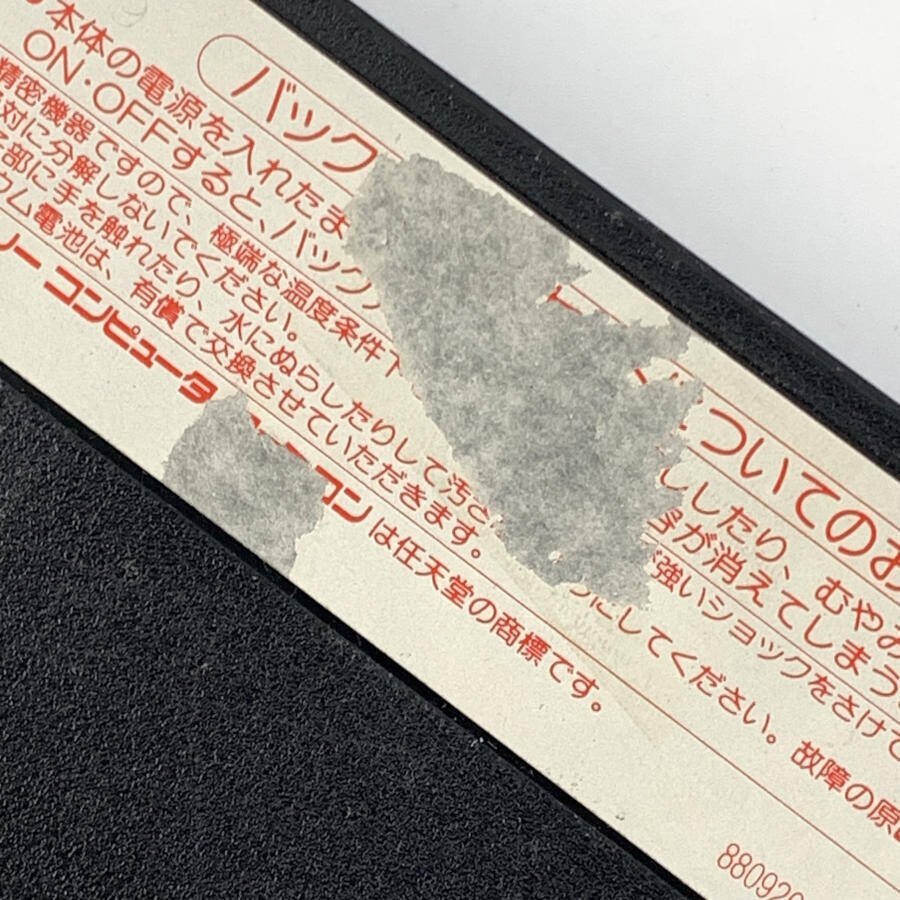 バック ついてのお
本体の電源を入れたま ししたり、むやみ
ON・OFFすると、バック が消えてしまう
精密機器ですので、極端な温度条件下 強いショックをさけて
対に分解しないでください。
部に手を触れたり、水にぬらしたりして汚さ にしてください。故障の原
ム電池は、有償で交換させていただきます。
リー コンピュータ コンは任天堂の商標です。
880920